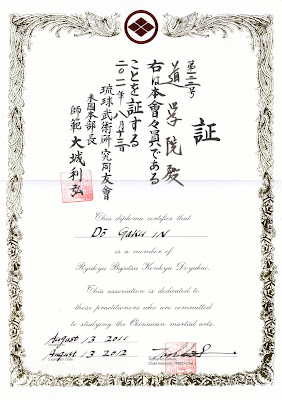 証
道学院殿
右は本會々員である
ことを証する
二〇一一年八月十三日
琉球武術研究同友會
米国本部長
師範 大城利弘
This diploma certifies that
Dō Gaku IN
is a member of
Ryukyu Bujutsu Kenkyu Doyukai,
This association is dedicated to
those practitioners who are committed
to studying the Okinawan martial arts.
August 13 2011
August 13 2012